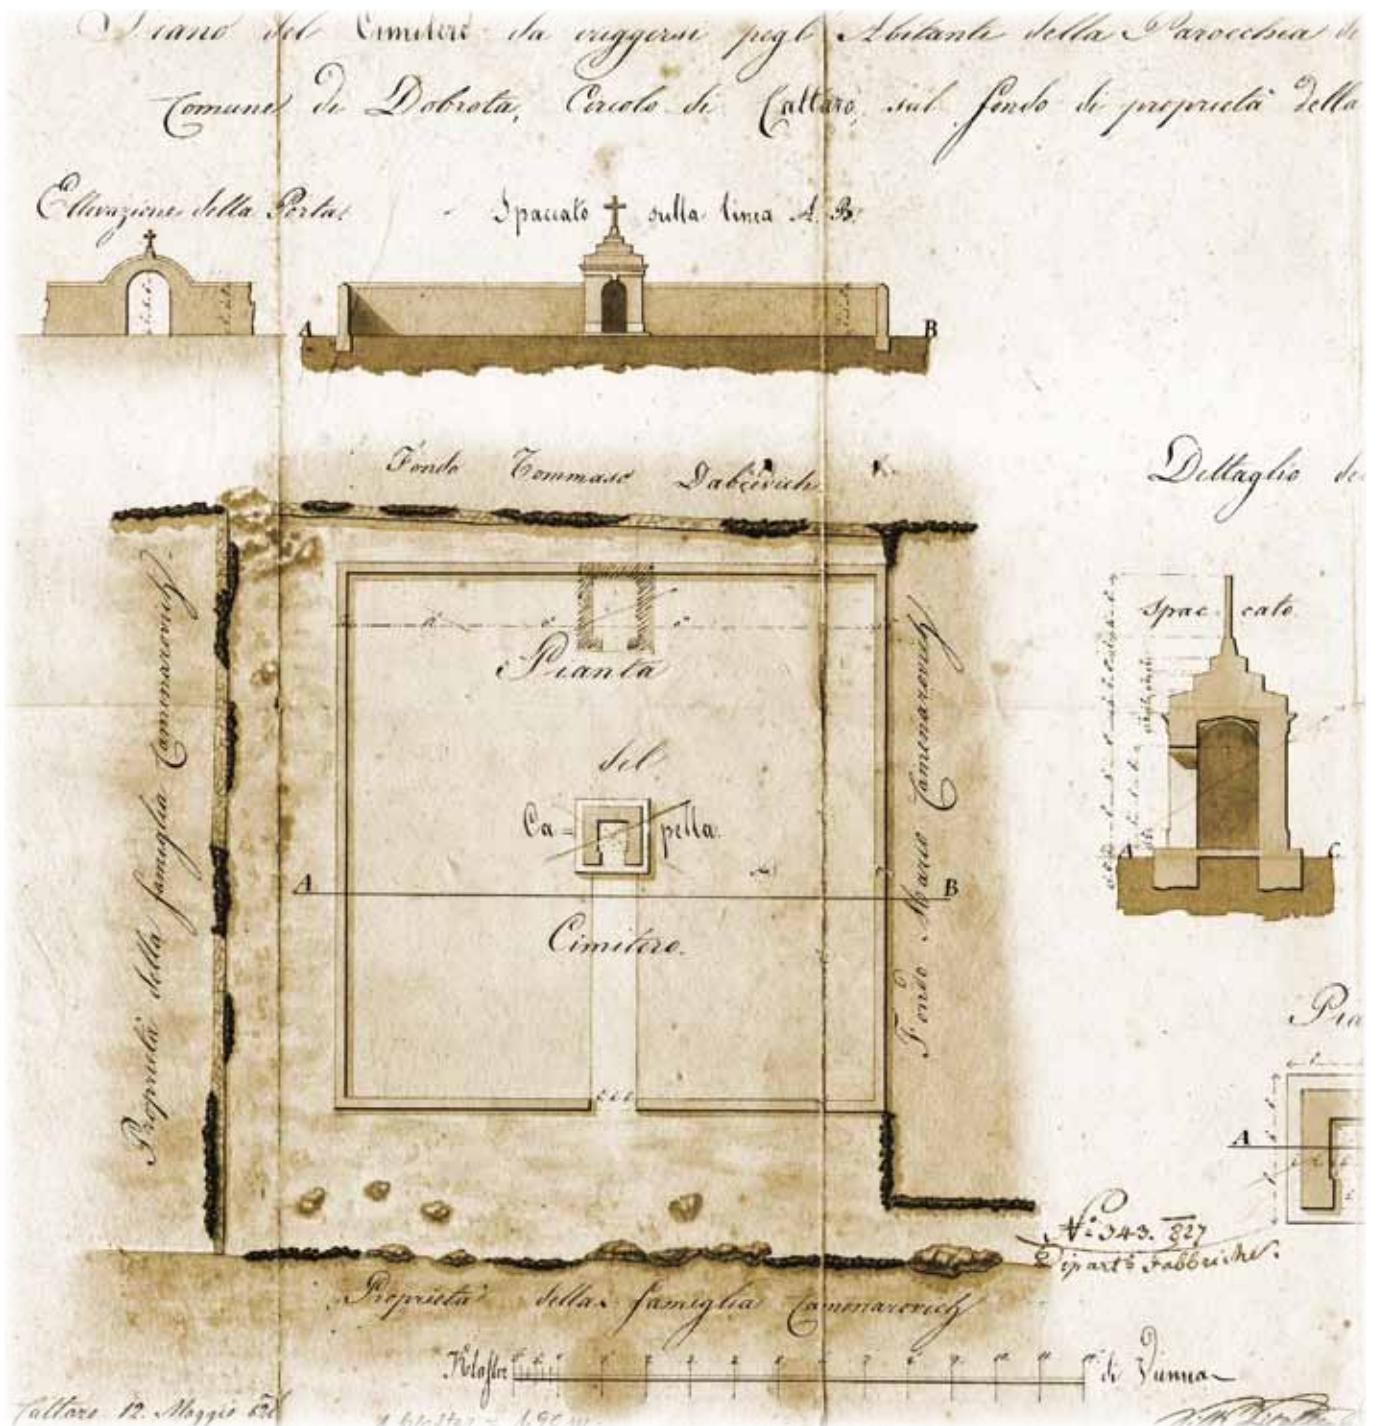 Piano del Cimitero da eriggersi pegl' Abitanti della Parocchia di
Comune di Dobrota, Circolo di Cattaro, sul fondo di proprietà della
Ellevazione della Porta.
Spaccato sulla linea A. B.
A B
Fondo Tommaso Dabcevich
Dettaglio
Proprietà della famiglia Camenarovich
Pianta
del
Ca= pella.
A B
Cimitero.
Fondo Marco Camenarovich
Spac cato
A C
Pia
A
N.° 343. 827
Dipart.° Fabbriche.
Proprietà della famiglia Camenarovich
Klafter di Vienna
Cattaro 12. Maggio